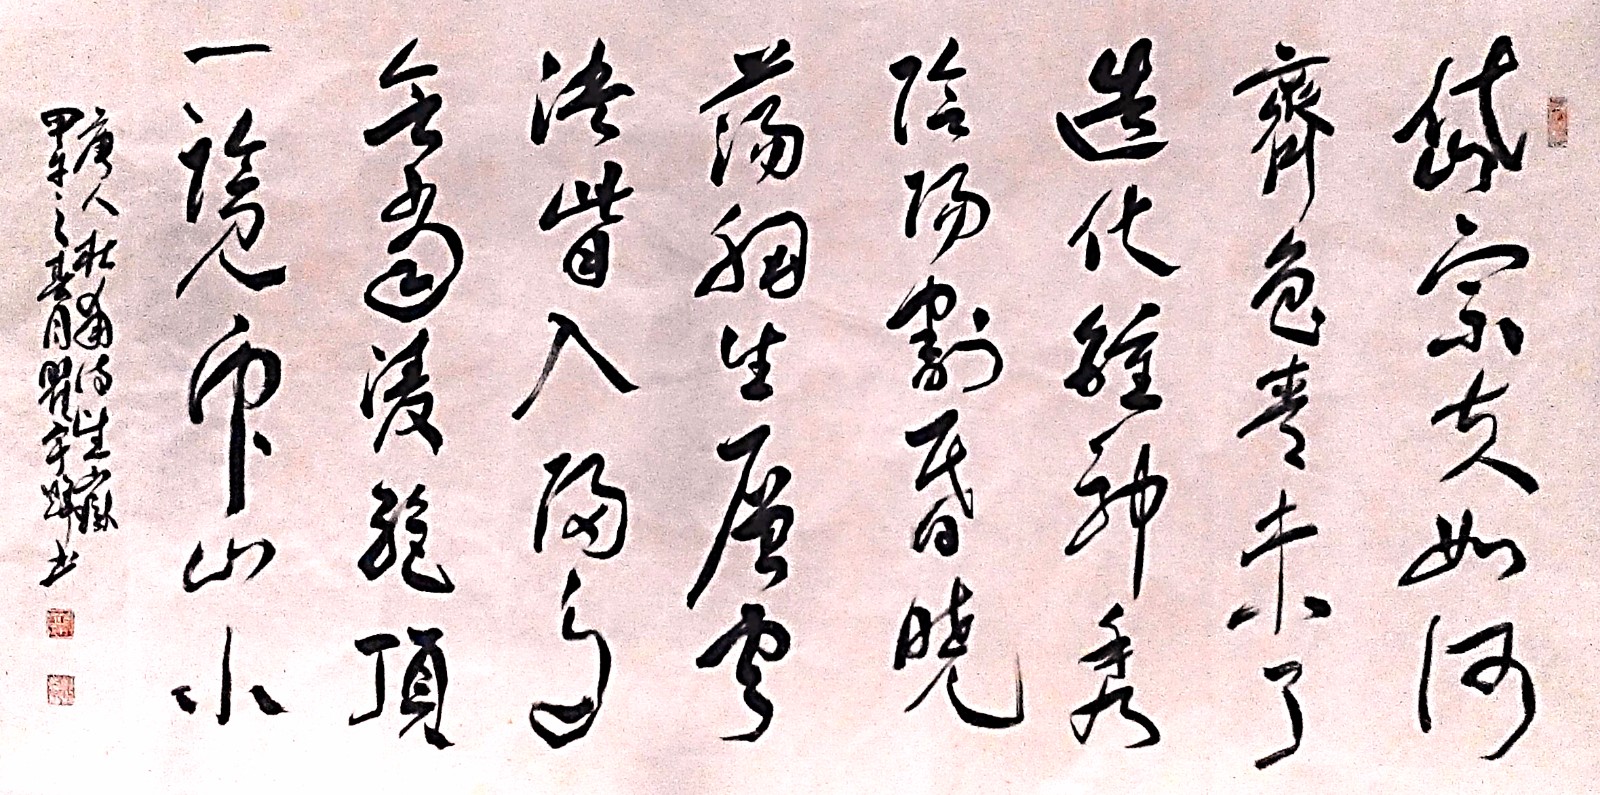 岱宗夫如何
齊魯青未了
造化鍾神秀
陰陽割昏曉
蕩胸生層雲
決眥入歸鳥
會當凌絕頂
一覽眾山小
唐人杜甫詩望嶽
甲午之春月瞿書